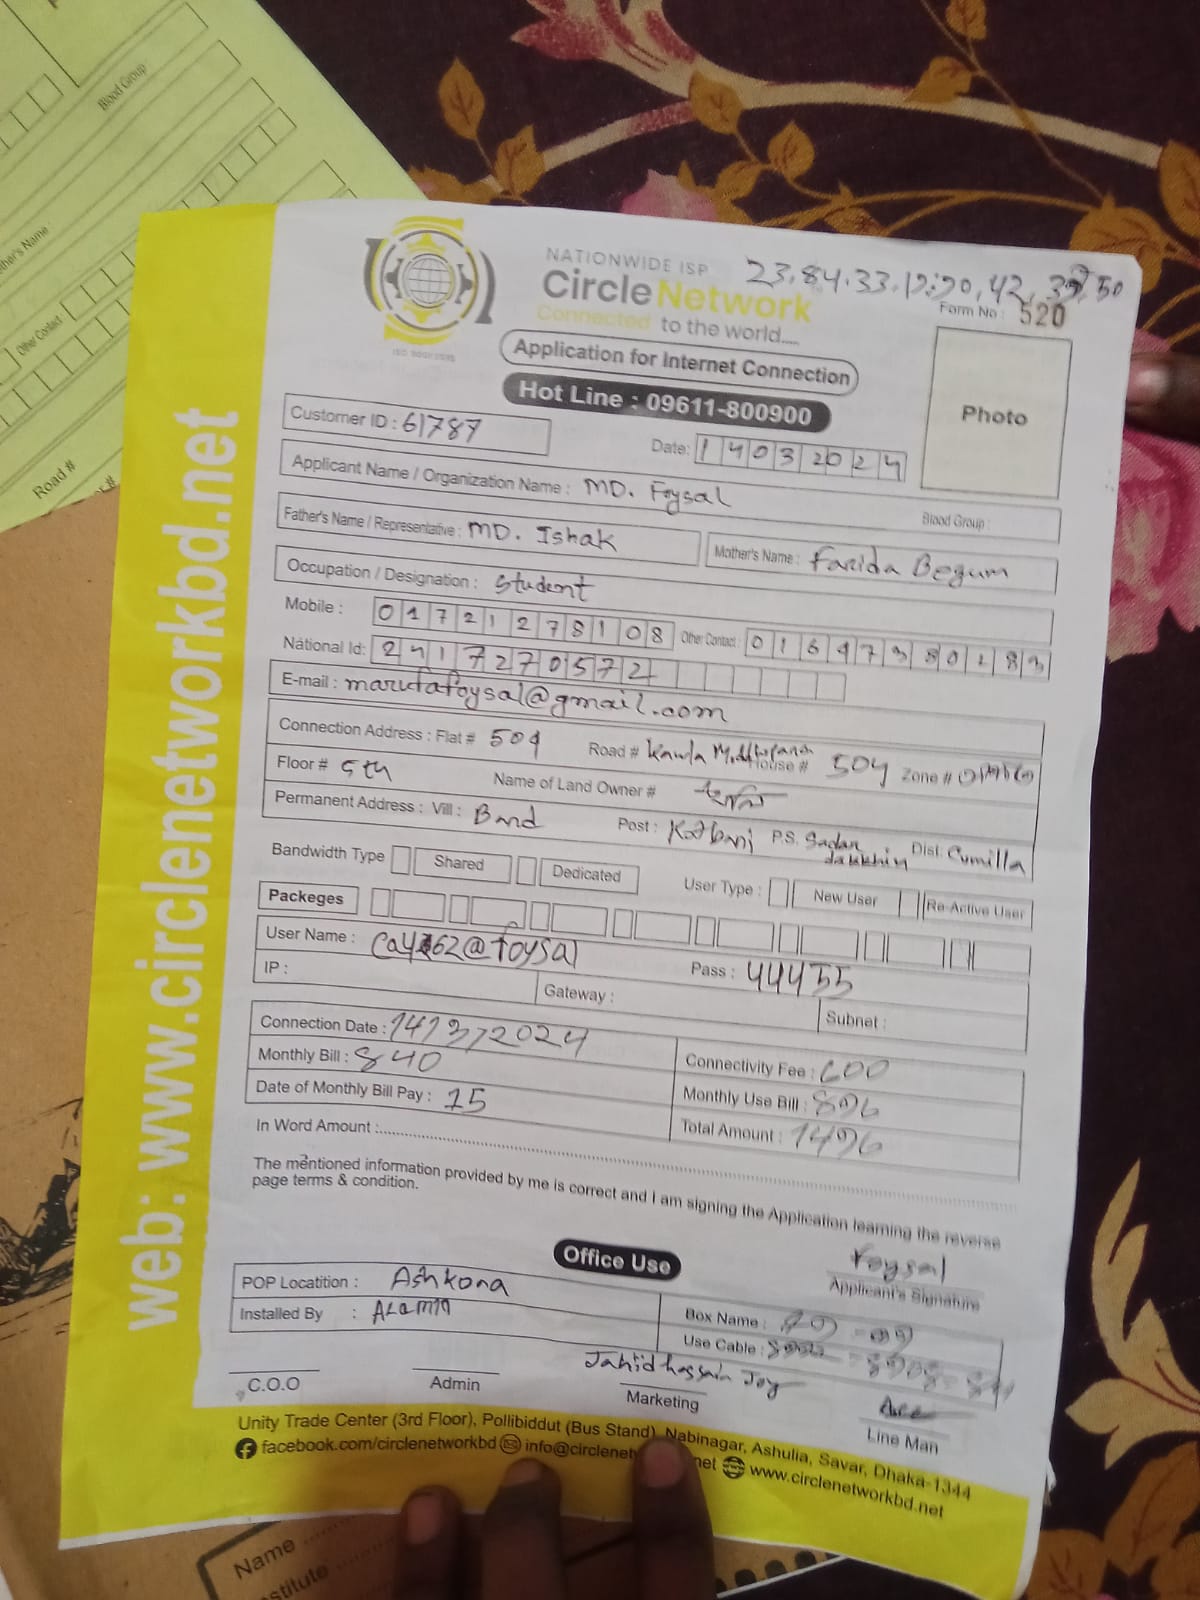 Blood Group
Other's Name
Other Contact :
Road #
NATIONWIDE ISP
Circle Network
Connected to the world.....
23.84.33.
42,
50
Form No : 520
Application for Internet Connection
Hot Line : 09611-800900
Photo
Customer ID : 61787
Date: 14032024
Applicant Name / Organization Name : MD. Foysal
Blood Group :
Father's Name / Representative : MD. Ishak
Mother's Name : Farida Begum
Occupation / Designation : Student
Mobile : 01721278108
Other Contact :
National Id: 2417270572
E-mail : marufafoysal@gmail.com
Connection Address : Flat # 504 Road # Kawla House # 504 Zone #
Floor # 5th Name of Land Owner #
Permanent Address : Vill : Band Post : Kotbari P.S. Sadar dakkhin Dist: Cumilla
Bandwidth Type Shared Dedicated User Type : New User Re-Active User
Packeges
User Name : Pass : 444455
IP : Gateway : Subnet :
Connection Date : 14/3/2024
Monthly Bill : 840 Connectivity Fee : 600
Date of Monthly Bill Pay : 15 Monthly Use Bill : 896
In Word Amount : Total Amount : 1496
The mentioned information provided by me is correct and I am signing the Application learning the reverse
page terms & condition.
Foysal
Applicant's Signature
Office Use
POP Locatition : Ashkona
Installed By : Box Name :
Use Cable :
Jahid hossain Joy
C.O.O Admin Marketing Line Man
Unity Trade Center (3rd Floor), Pollibiddut (Bus Stand), Nabinagar, Ashulia, Savar, Dhaka-1344
facebook.com/circlenetworkbd info@circlenet net www.circlenetworkbd.net
web: www.circlenetworkbd.net
Name
stitute